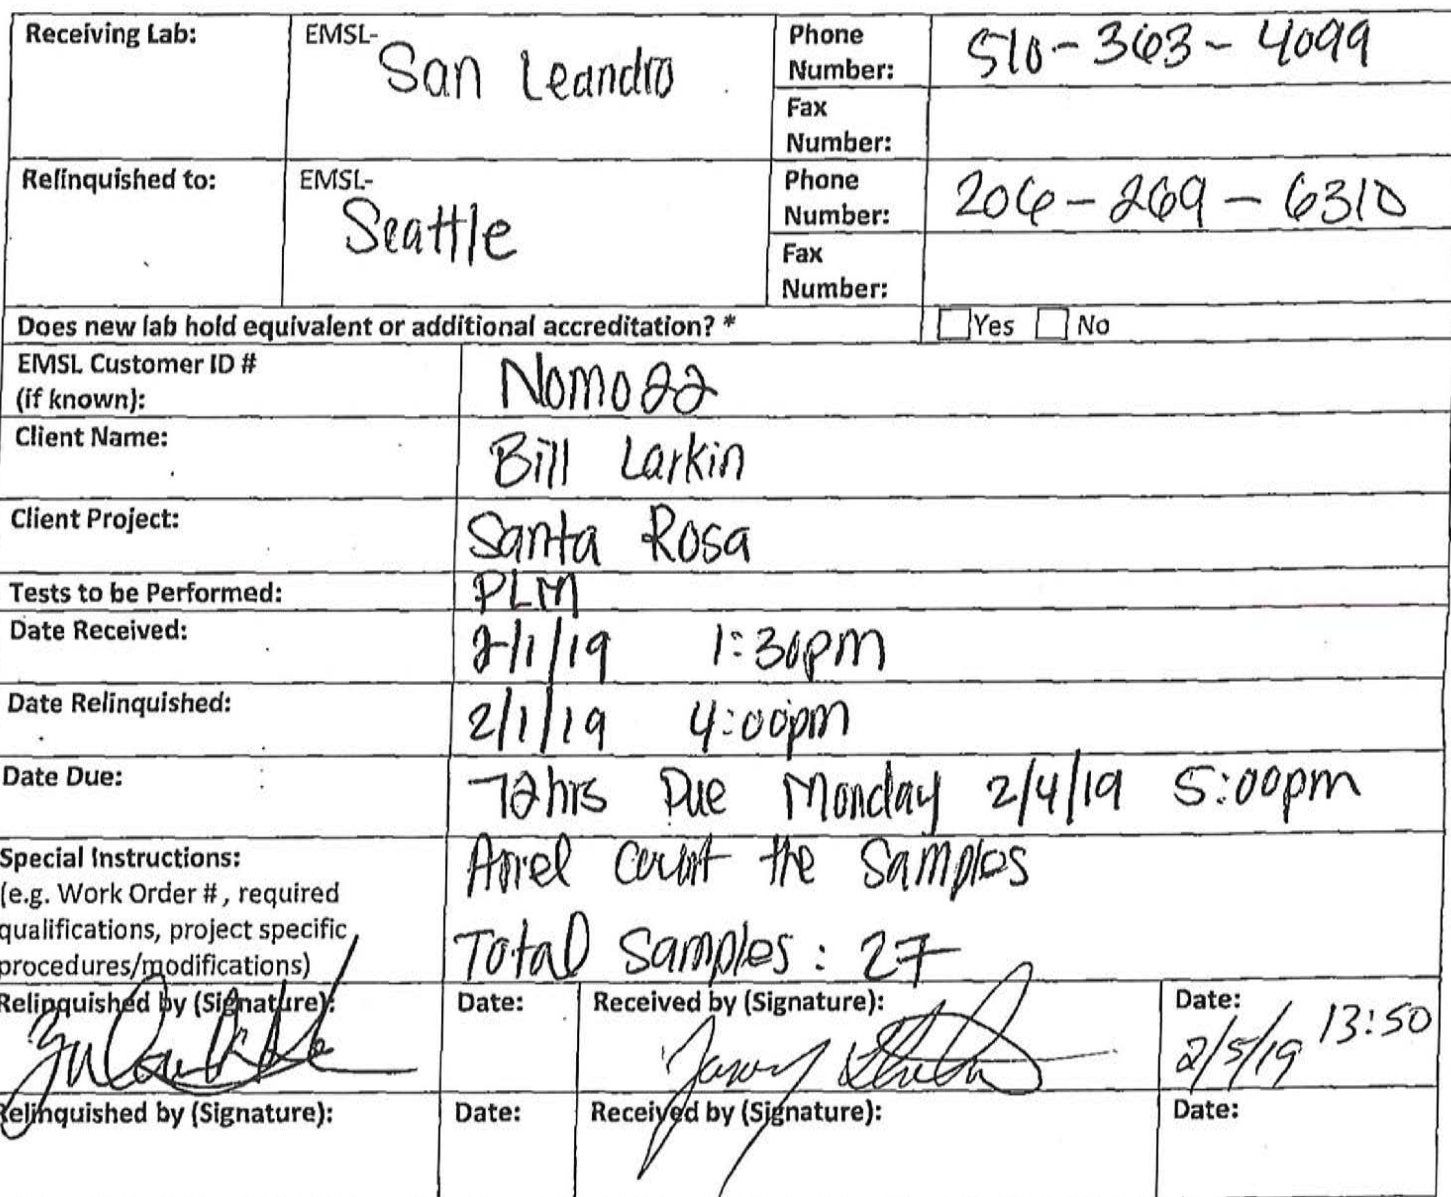 Receiving Lab: EMSL- San Leandro Phone Number: 510-363-4099
Fax Number:
Relinquished to: EMSL- Seattle Phone Number: 206-269-6310
Fax Number:
Does new lab hold equivalent or additional accreditation? * Yes No
EMSL Customer ID #
(if known): Nomo22
Client Name: Bill Larkin
Client Project: Santa Rosa
Tests to be Performed: PLM
Date Received: 2/1/19 1:30pm
Date Relinquished: 2/1/19 4:00pm
Date Due: 72hrs Due Monday 2/4/19 5:00pm
Special Instructions: count the samples
(e.g. Work Order #, required
qualifications, project specific
procedures/modifications) Total Samples: 27
Relinquished by (Signature): Date: Received by (Signature): Date: 2/5/19 13:50
Relinquished by (Signature): Date: Received by (Signature): Date: